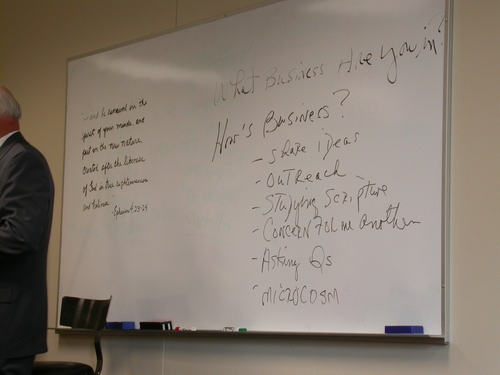 and be renewed in the
spirit of your minds, and
put on the new nature,
created after the likeness
of God in true righteousness
and holiness.
- Ephesians 4:23-24
What Business Are You in?
How's Business?
- Share ideas
- OutReach
- Studying Scripture
- Concern for one another
- Asking Qs
- Microcosm